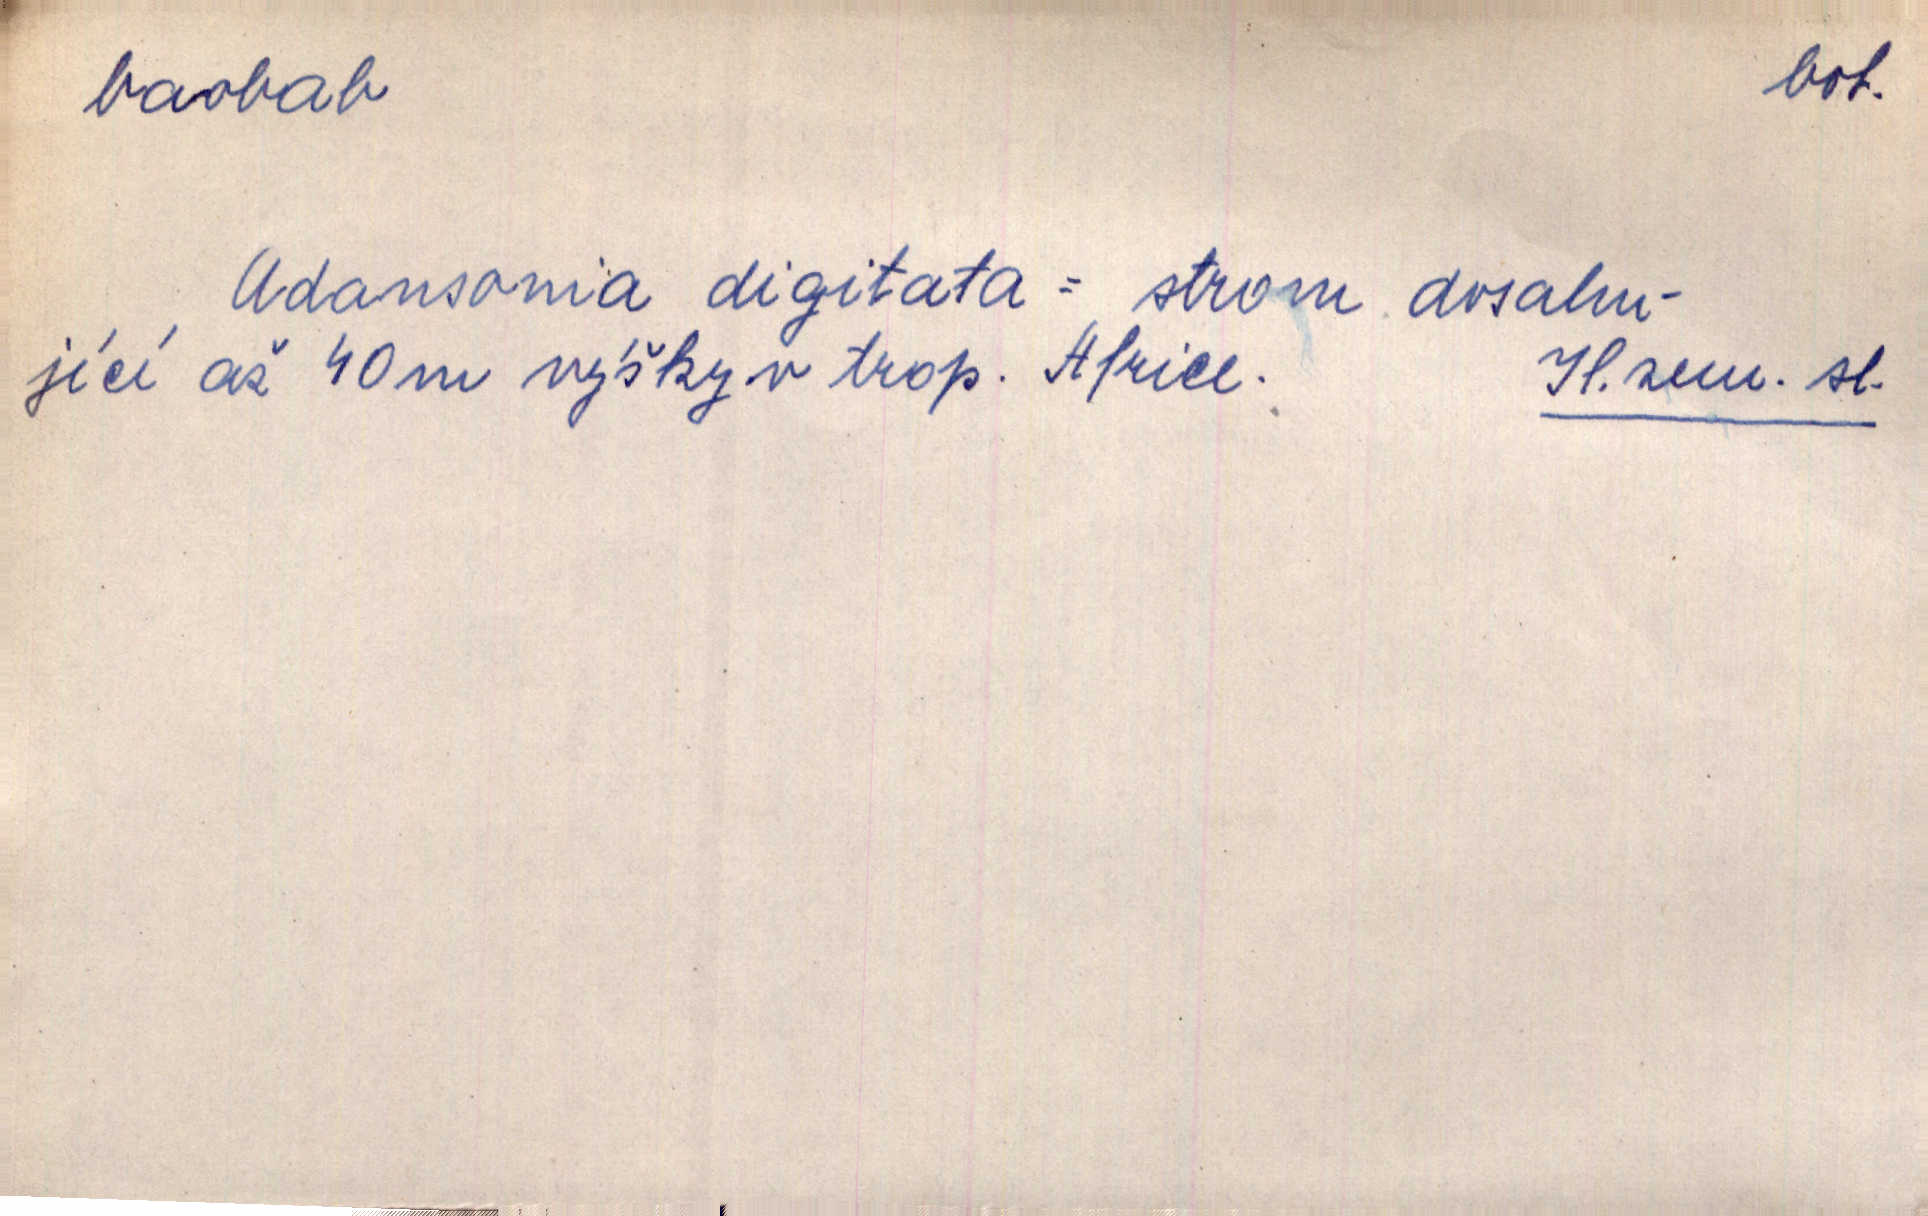 baobab bot.
Adansonia digitata = strom dosahu-
jící až 40 m výšky v trop. Africe. Il. zem. sl.